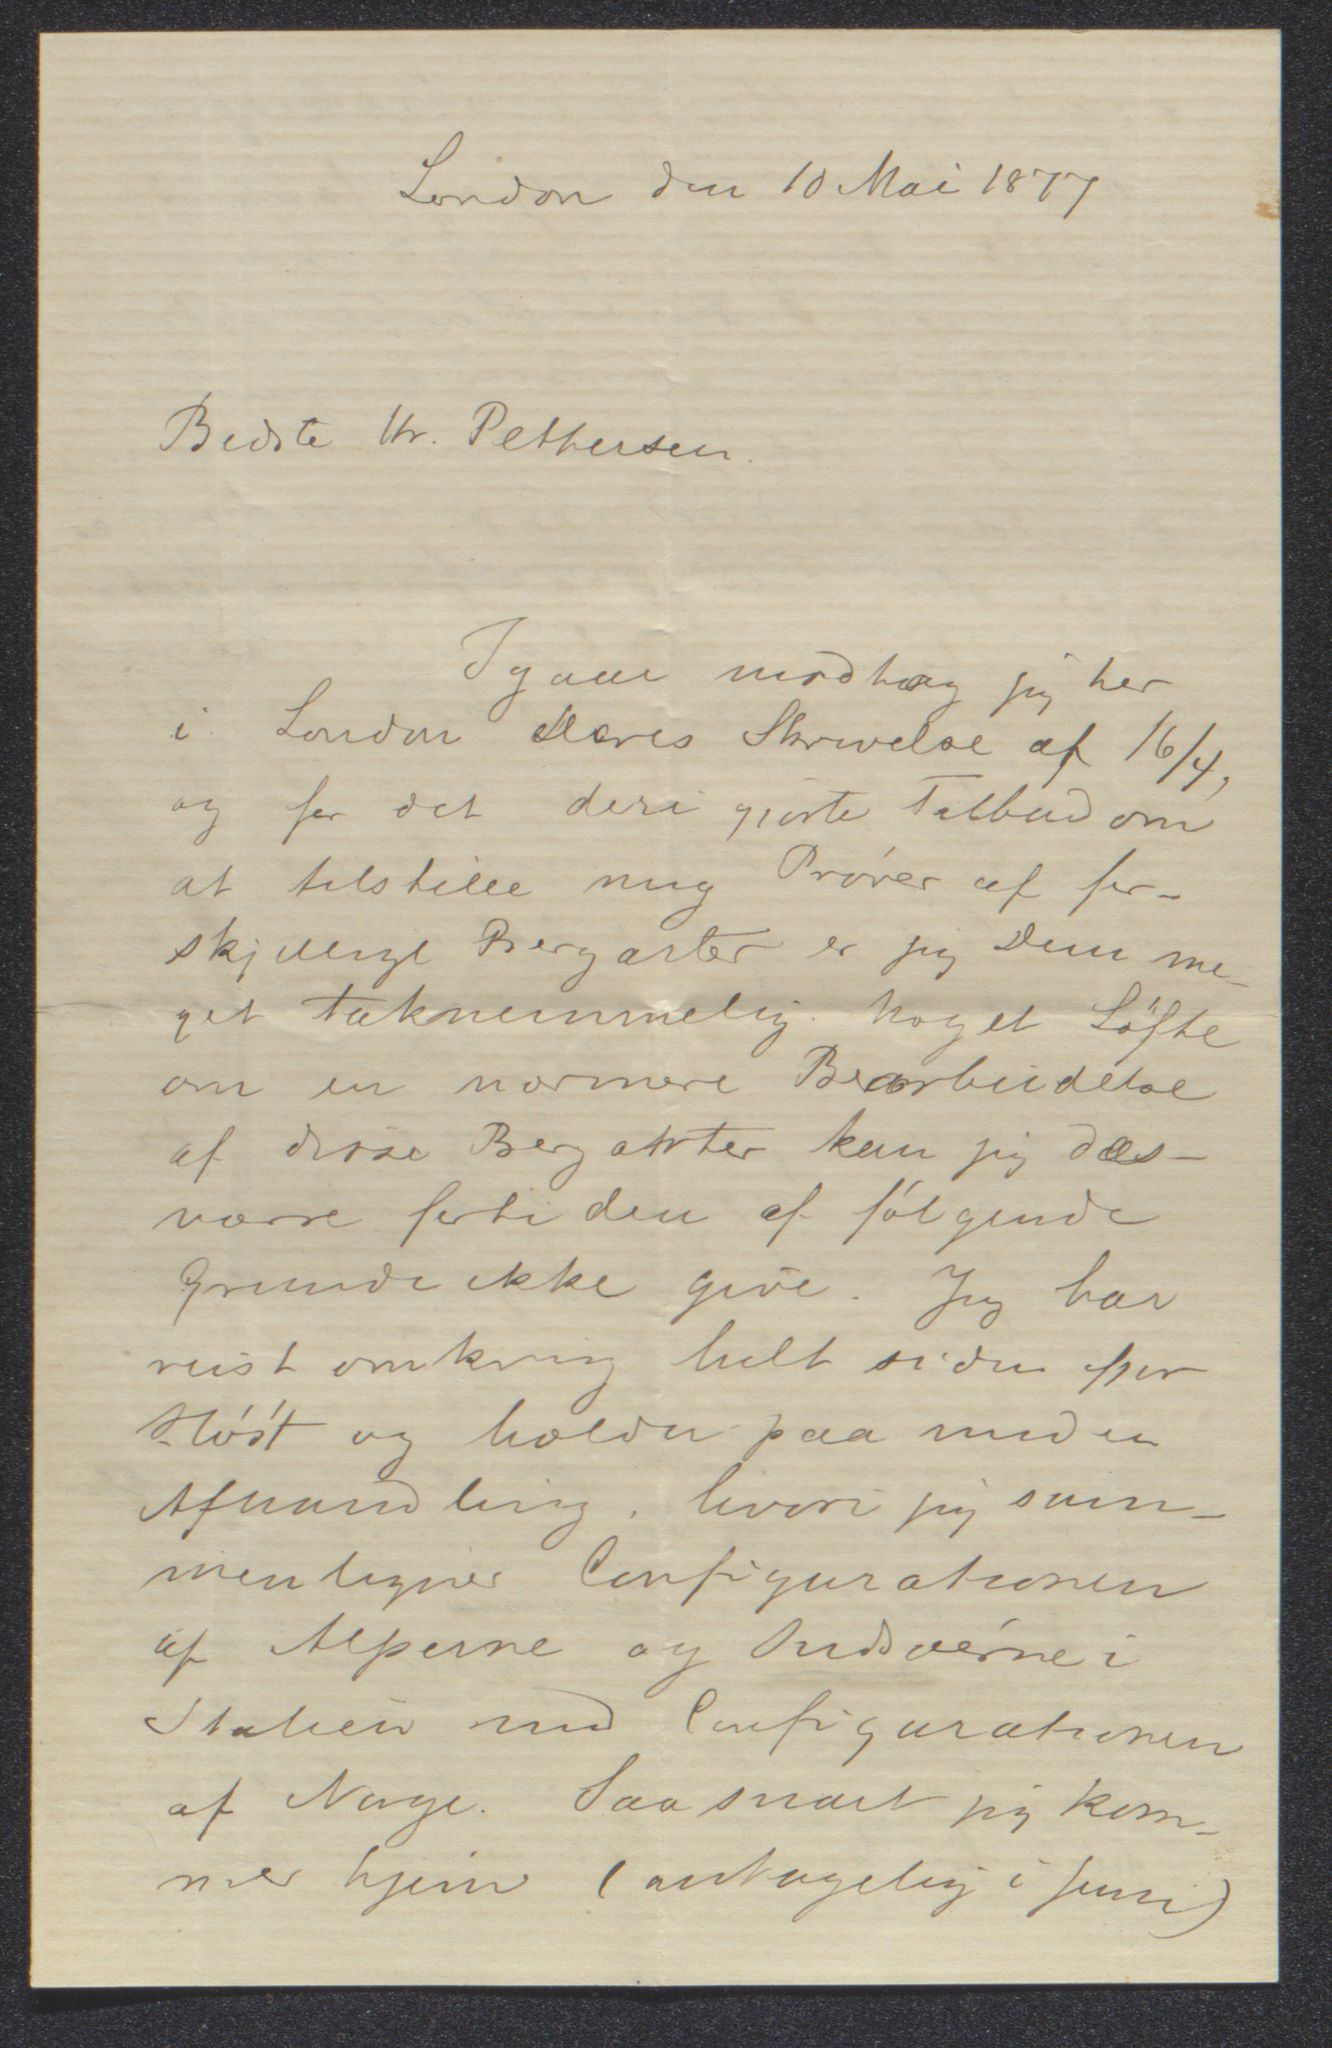 London den 10 Mai 1877
Bedste Hr. Petthersen.
Igaar modtog jeg her
i London Deres Skrivelse af 16/4,
og for det deri gjorte Tilbud om
at tilstille mig Prøver af for-
skjellige Bergarter er jeg Dem me-
get taknemmelig. Noget Löfte
om en nærmere Bearbeidelse
af disse Bergarter kan jeg des-
værre fortiden af følgende
Grunde ikke give. Jeg har
reist omkring helt siden ifjor
Høst og holder paa med en
Afhandling, hvori jeg sam-
menligner Configurationen
af Alperne og Indsøerne i
Italien med Configurationen
af Norge. Saasnart jeg kom-
mer hjem (antagelig i Juni)